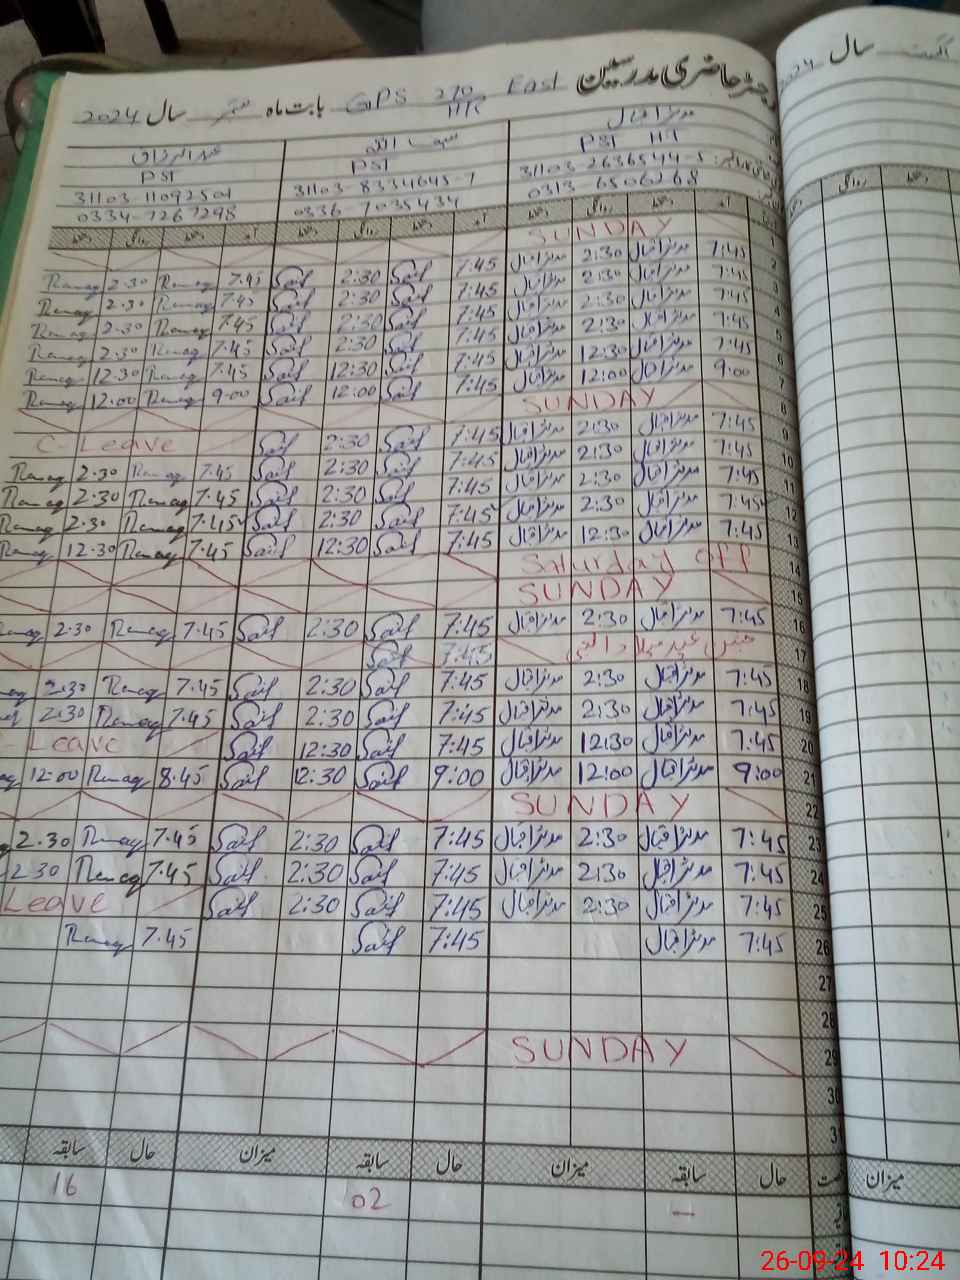 رجسٹر حاضری مدرسین GPS 270/HR East بابت ماہ ستمبر سال 2024
سال
مدثر اقبال عبدالرزاق
PST HT PST PST
31103-2636544-5 31103-8334645-7 31103-11092501
0313-6506268 0336-7035434 0334-7267298
آمد دستخط روانگی دستخط آمد دستخط روانگی دستخط آمد دستخط روانگی دستخط
1 SUNDAY
2 7:45 مدثر اقبال 2:30 مدثر اقبال 7:45 Saif 2:30 Saif 7.45 2.30
3 7:45 مدثر اقبال 2:30 مدثر اقبال 7:45 Saif 2:30 Saif 7.45 2.30
4 7:45 مدثر اقبال 2:30 مدثر اقبال 7:45 Saif 2:30 Saif 7.45 2.30
5 7:45 مدثر اقبال 2:30 مدثر اقبال 7:45 Saif 2:30 Saif 7.45 2.30
6 7:45 مدثر اقبال 12:30 مدثر اقبال 7:45 Saif 12:30 Saif 7.45 12.30
7 9:00 مدثر اقبال 12:00 مدثر اقبال 7:45 Saif 12:00 Saif 9.00 12.00
8 SUNDAY
9 7:45 مدثر اقبال 2:30 مدثر اقبال 7:45 Saif 2:30 Saif C-Leave
10 7:45 مدثر اقبال 2:30 مدثر اقبال 7:45 Saif 2:30 Saif 7.45 2.30
11 7:45 مدثر اقبال 2:30 مدثر اقبال 7:45 Saif 2:30 Saif 7.45 2.30
12 7:45 مدثر اقبال 2:30 مدثر اقبال 7:45 Saif 2:30 Saif 7.45 2.30
13 7:45 مدثر اقبال 12:30 مدثر اقبال 7:45 Saif 12:30 Saif 7.45 12.30
14 Saturday off
15 SUNDAY
16 7:45 مدثر اقبال 2:30 مدثر اقبال 7:45 Saif 2:30 Saif 7.45 2.30
17 جشن عید میلاد النبی 7:45 Saif
18 7:45 مدثر اقبال 2:30 مدثر اقبال 7:45 Saif 2:30 Saif 7.45 2.30
19 7:45 مدثر اقبال 2:30 مدثر اقبال 7:45 Saif 2:30 Saif 7.45 2.30
20 7:45 مدثر اقبال 12:30 مدثر اقبال 7:45 Saif 12:30 Saif Leave
21 9:00 مدثر اقبال 12:00 مدثر اقبال 9:00 Saif 12:30 Saif 8.45 12.00
22 SUNDAY
23 7:45 مدثر اقبال 2:30 مدثر اقبال 7:45 Saif 2:30 Saif 7.45 2.30
24 7:45 مدثر اقبال 2:30 مدثر اقبال 7:45 Saif 2:30 Saif 7.45 2.30
25 7:45 مدثر اقبال 2:30 مدثر اقبال 7:45 Saif 2:30 Saif Leave
26 7:45 مدثر اقبال 7:45 Saif 7.45
27
28
29 SUNDAY
30
31
میزان حال سابقہ میزان حال سابقہ میزان حال سابقہ
— 02 16
26-09-24 10:24